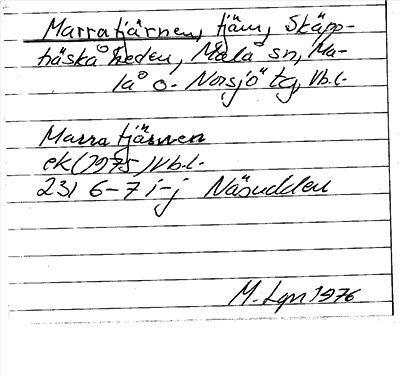 Marratjärnen, tjärn, Skäpp-
träskåheden, Malå sn, Ma-
lå o. Norsjö tg, Vb.l.
Marratjärnen
ek (1975) Vb.l.
231 6-7 i-j Näsudden
M. Lgn 1976